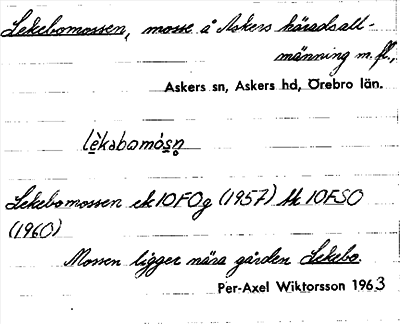 Lekebomossen, mosse å Askers häradsall-
männing m. fl.,
Askers sn, Askers hd, Örebro län.
lèkabomósn̥
Lekebomossen ek 10FOg (1957) tk 10FSO
(1960)
Mossen ligger nära gården Lekebo.
Per-Axel Wiktorsson 1963